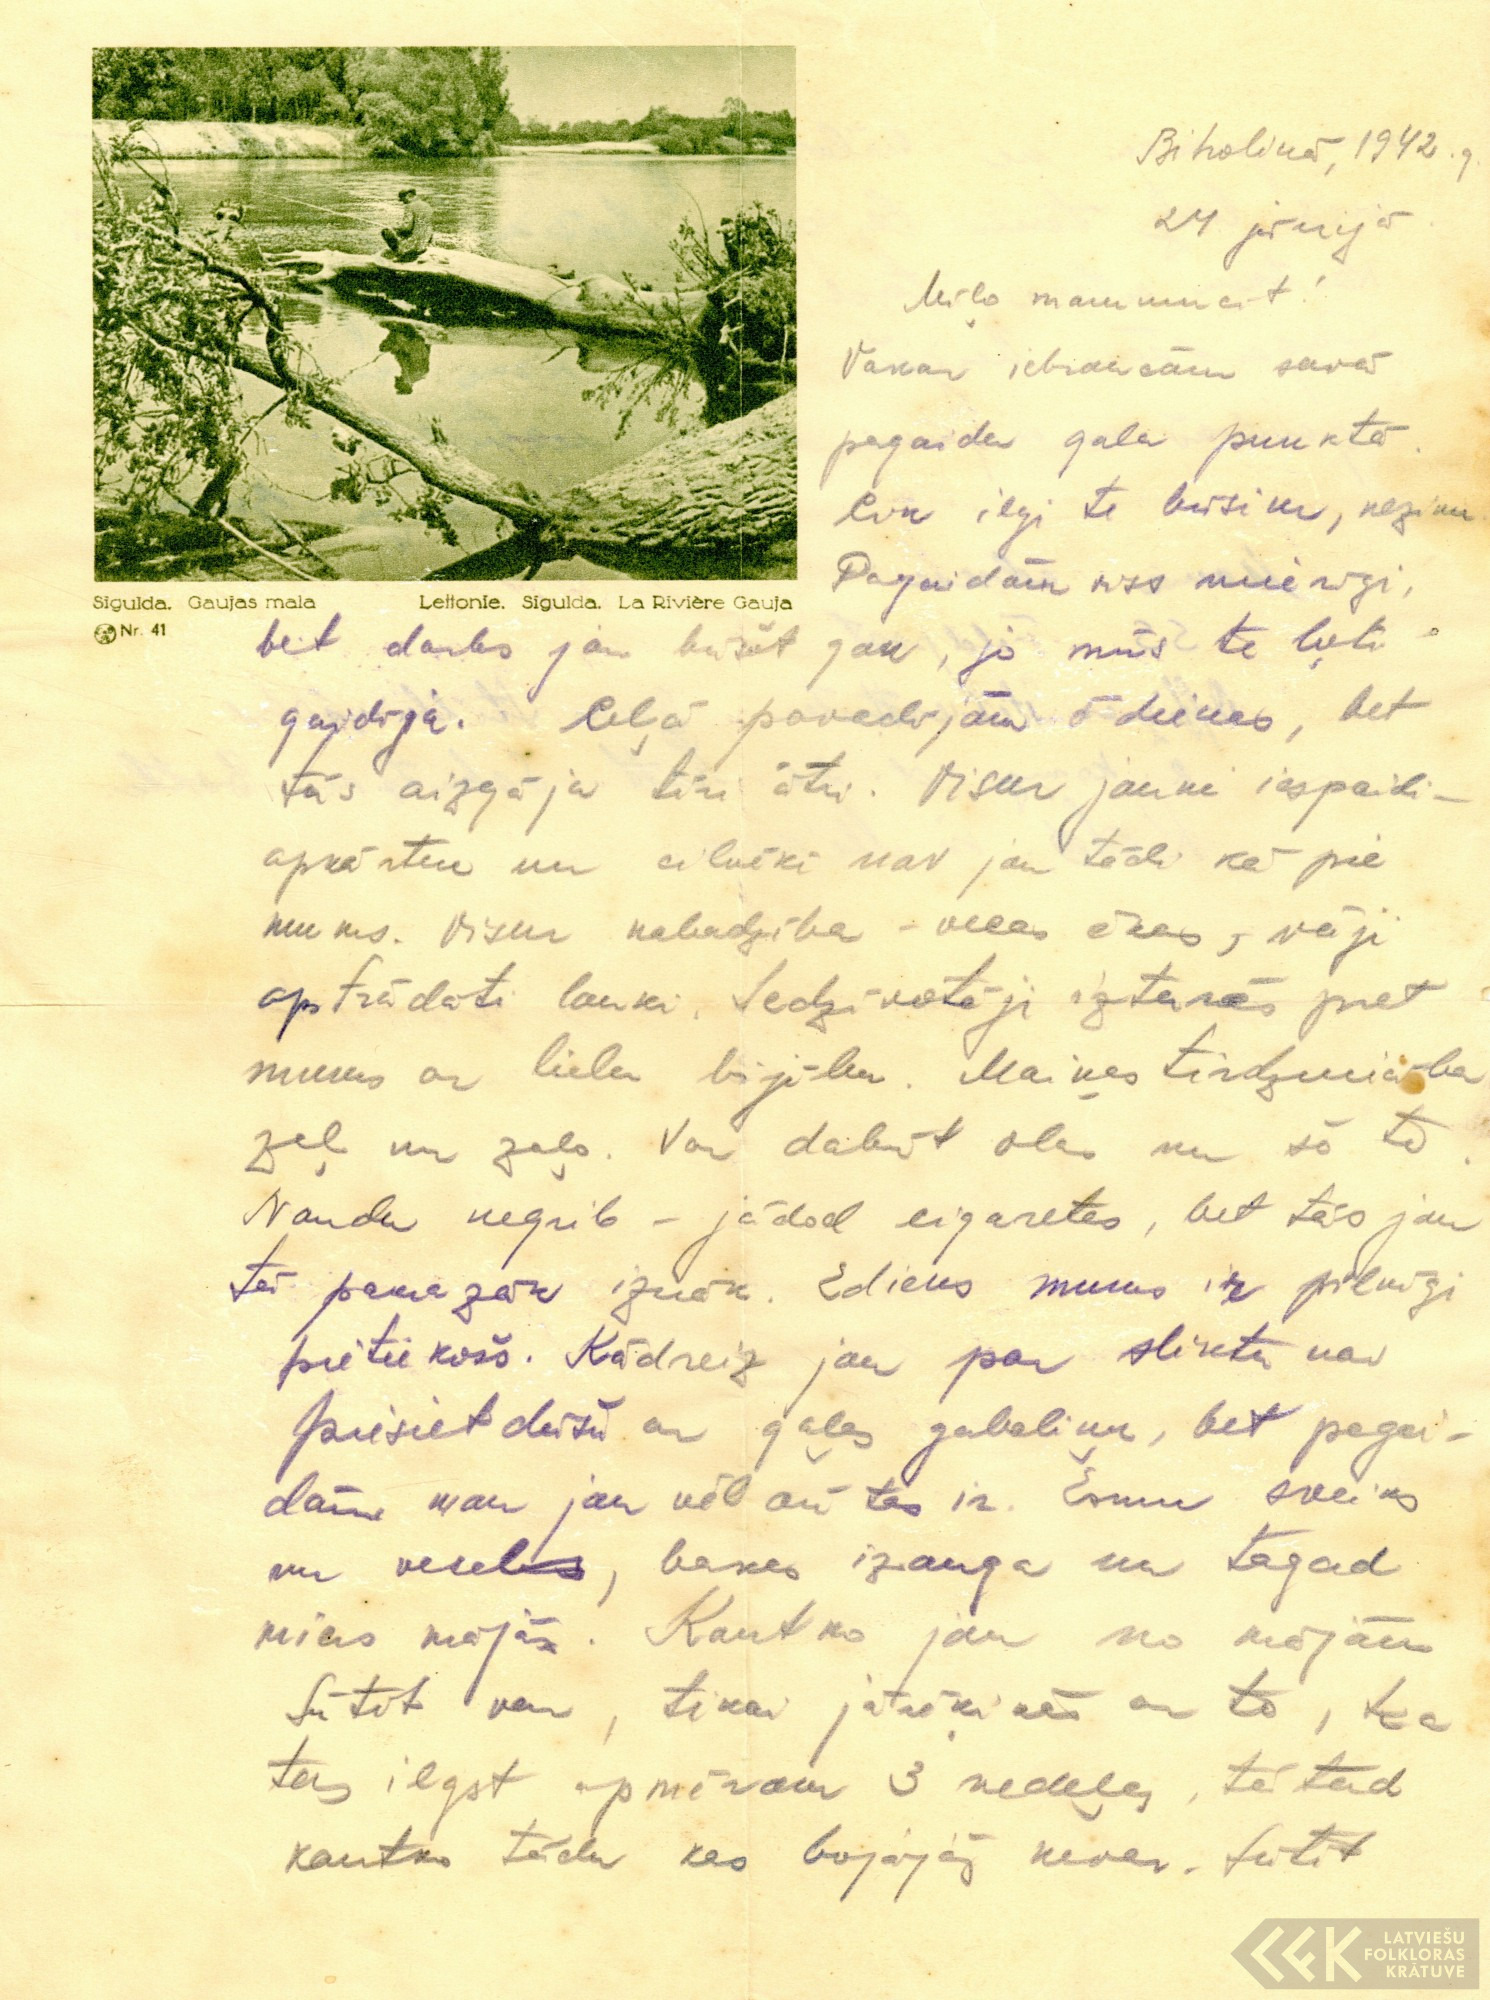 Sigulda. Gaujas mala
Lettonie. Sigulda. La Rivière Gauja
Nr. 41
1942. g.
24 jūnijā
Mīļo mammucīt!
Vakar iebraucām savā
pagaidu gala punktā.
Cik ilgi te būsim, nezinu.
Pagaidām viss mierīgi,
bet darbs jau būšot gan, jo mūs te ļoti
gaidīja. Ceļā pavadījām 8 dienas, bet
tās aizgāja tīri ātri. Visur jauni iespaidi –
apkārtne un cilvēki nav jau tādi kā pie
mums. Visur nabadzība – vecas ēkas, vāji
apstrādāti lauki. Iedzīvotāji izturās pret
mums ar lielu bijību. Maiņas tirdzniecība
zeļ un zaļo. Var dabūt olas un šo to.
Naudu negrib – jādod cigaretes, bet tās jau
tā pamazāk iznāk. Ēdiens mums ir pilnīgi
pietiekošs. Kādreiz jau par sliktu nav
piesiet dūšu ar gaļas gabaliņu, bet pagai-
dām man jau vēl arī tas ir. Esmu sveiks
un vesels, bakas izauga un tagad
miers mājās. Kautko jau no mājām
sūtīt var, tikai jārēķinās ar to, ka
tas ilgst apmēram 3 nedēļas, tātad
kautko tādu kas bojājās nevar. Sūtīt
LATVIEŠU
FOLKLORAS
KRĀTUVE